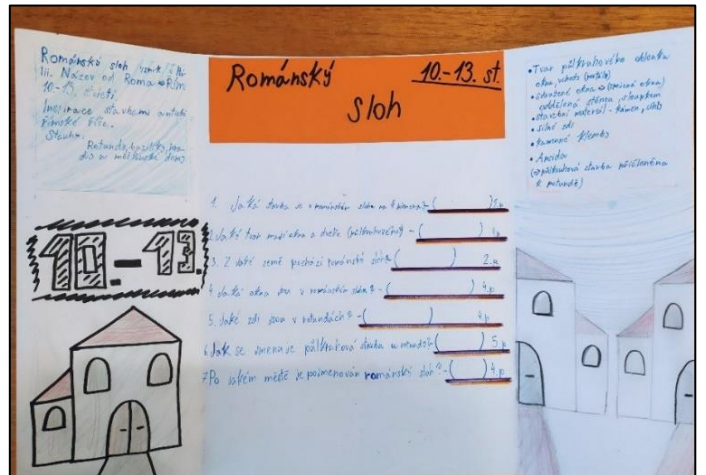 Románský sloh
III. Název od Roma → Řím
10-13. století
Inspirace stavbami antické
Římské říše.
Stavby.
Rotunda, baziliky, hra
dy a měšťanské domy
10.-13.
Románský 10.-13. st.
Sloh
1. Jaká stavba je v románském slohu na ( )
2. Jaký tvar mají okna a dveře (půlkruhového) - ( ) 1.p
3. Z jaké země pochází románský sloh ( ) 2.
4. Jaká okna jsou v románském slohu? - ( ) 4.p
5. Jaké zdi jsou v rotundách? - ( ) 4.p
6. Jak se jmenuje půlkruhová stavba u ( ) 5.p
7. Po jakém městě je pojmenován románský sloh? - ( ) 4.p
• Tvar půlkruhového oblouku
okna, vchody (portály)
• sdružené okna →
oddělená stěnou, sloupkem
• stavební materiál - kámen,
• silné zdi
• kamenné klenby
• Apsida
(→ půlkruhová stavba přičleněna
k rotundě)